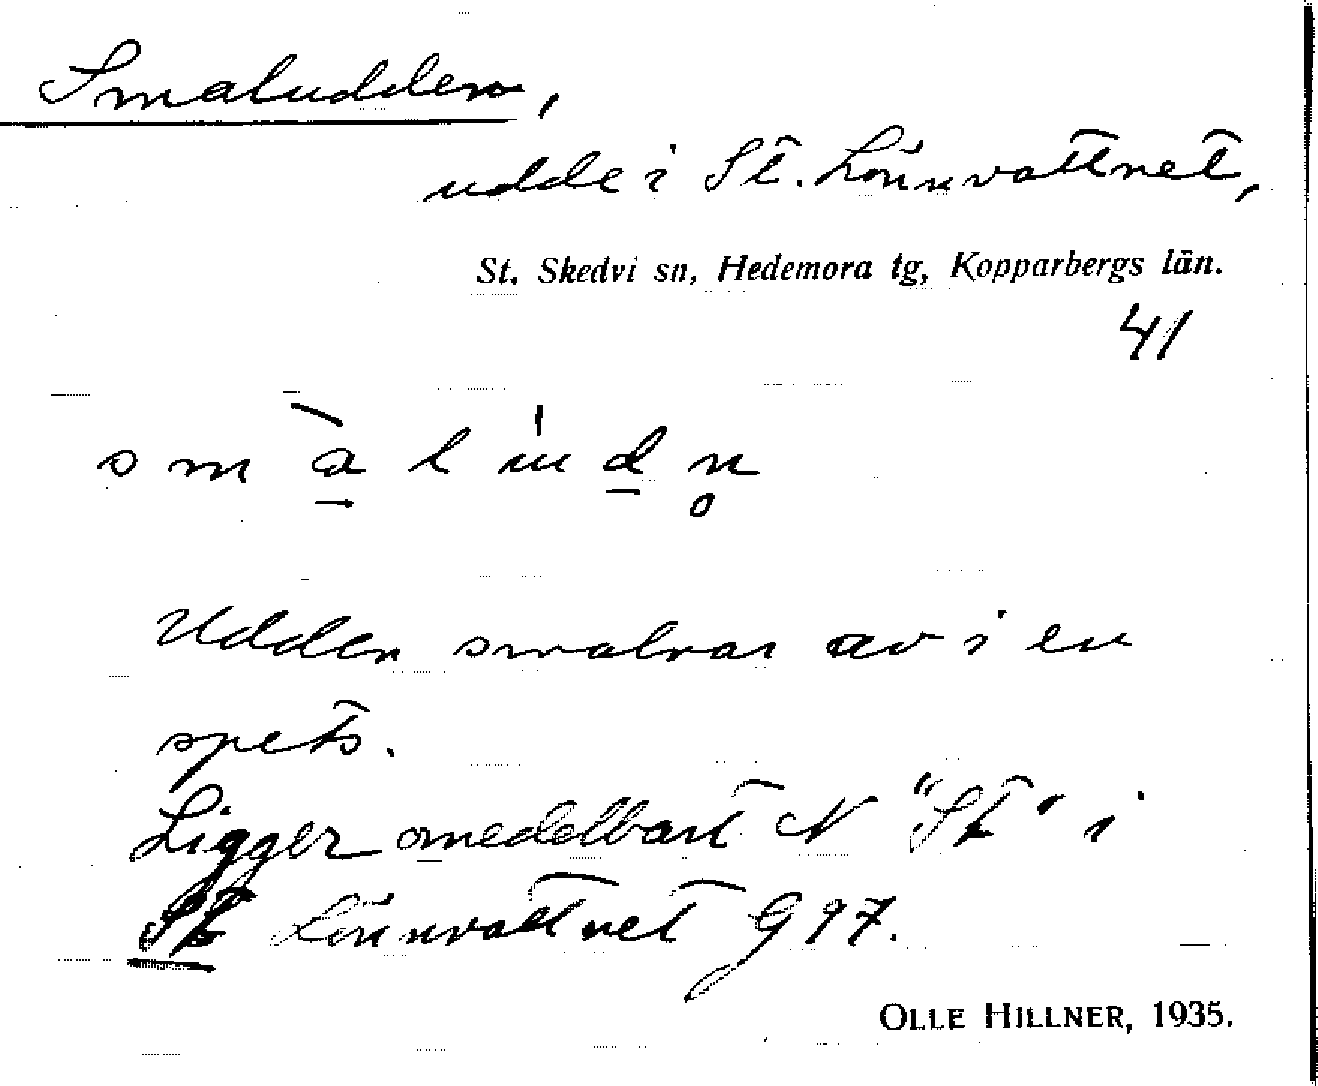 Smaludden,
udde i St. Lönnvattnet,
St. Skedvi sn, Hedemora tg, Kopparbergs län.
41
Udden smalnar av i en
spets.
Ligger omedelbart N "St" i
St Lönnvattnet G 97.
OLLE HILLNER, 1935.